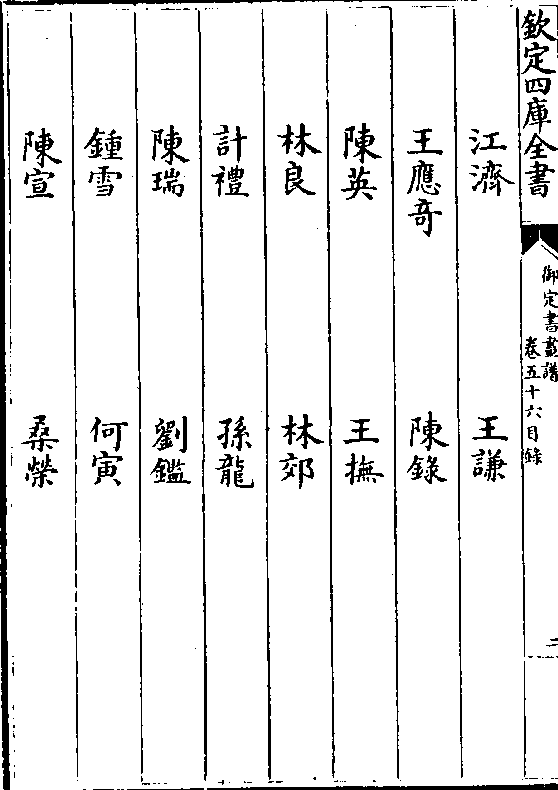 欽定四庫全書
御定書畫譜
卷五十六目錄
二
江濟 王謙
王應竒 陳錄
陳英 王撫
林良 林郊
計禮 孫龍
陳瑞 劉鑑
鍾雪 何寅
陳宣 桑榮